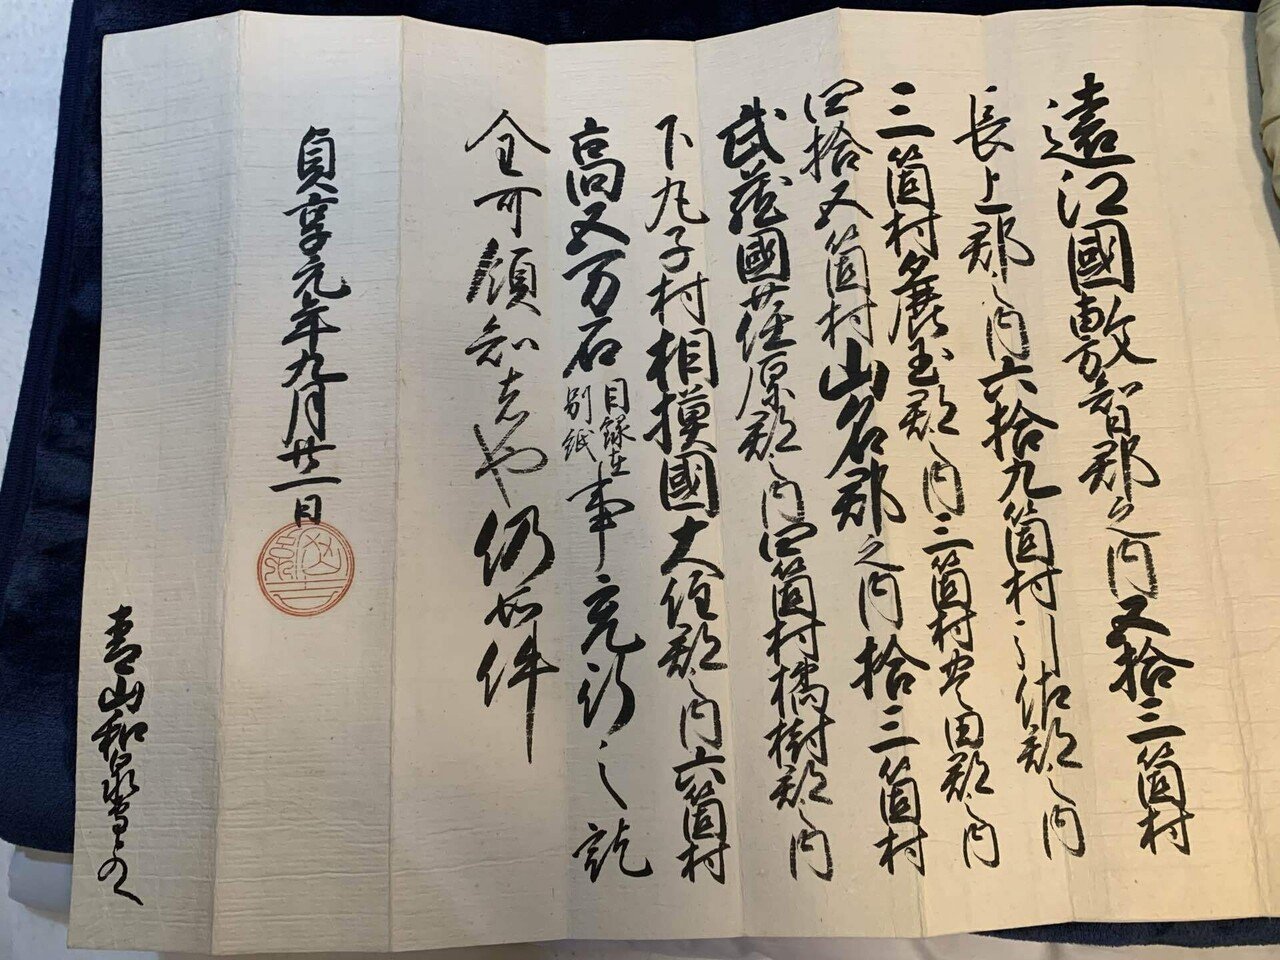 遠江國敷智郡之内五拾三箇村
長上郡之内六拾九箇村引佐郡之内
三箇村麁玉郡之内三箇村豊田郡之内
四拾五箇村山名郡之内拾三箇村
武蔵國荏原郡之内四箇村橘樹郡之内
下丸子村相摸國大住郡之内六箇村
高五万石目録在別紙事充行之訖
全可領知者也仍如件
貞享元年九月廿一日
青山和泉守とのへ